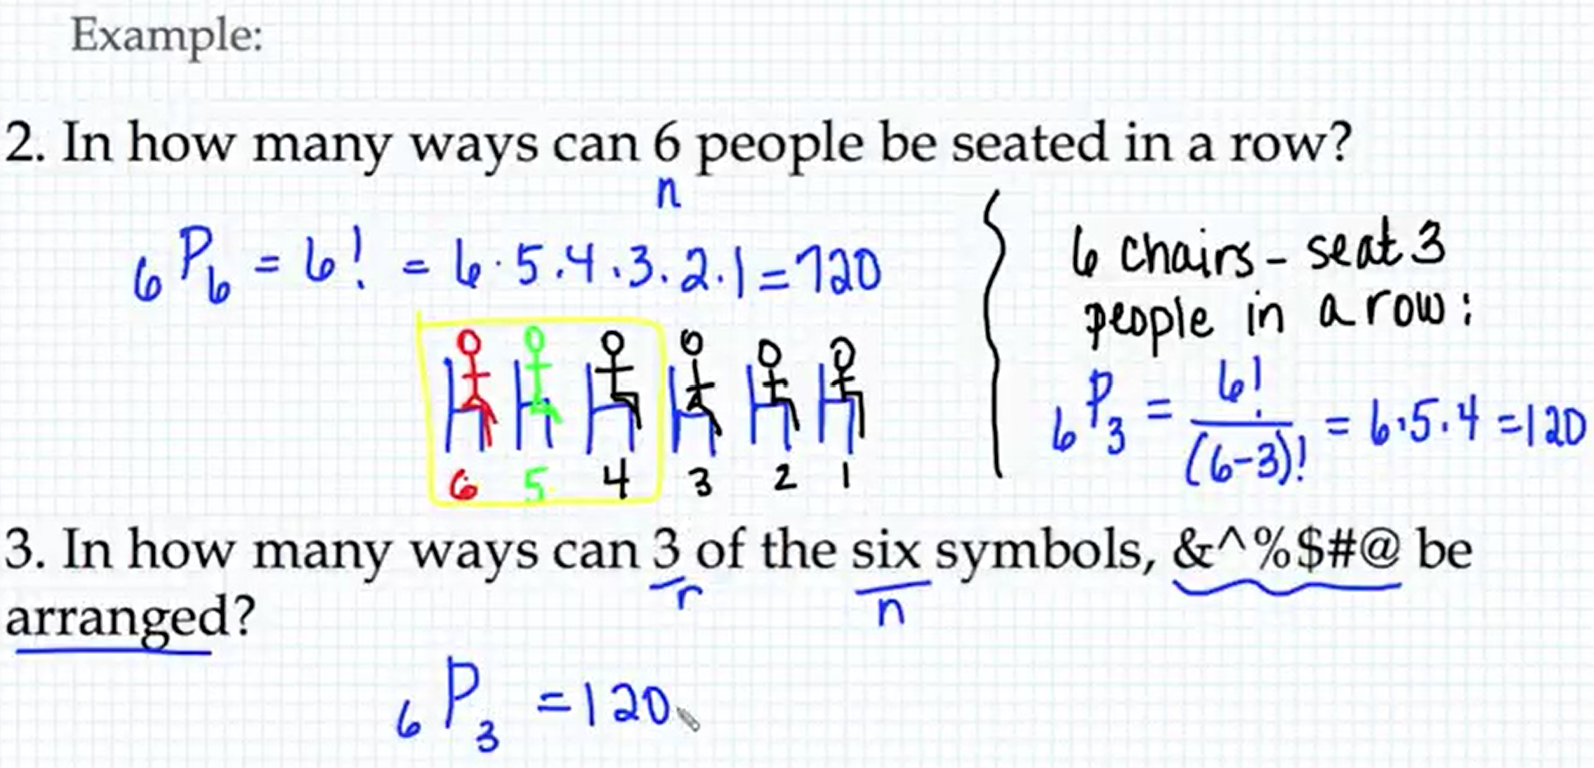 Example:
2. In how many ways can 6 people be seated in a row?
n
₆P₆ = 6! = 6·5·4·3·2·1=720
6 5 4 3 2 1
6 chairs - seat 3
people in a row:
₆P₃ = 6!/(6-3)! = 6·5·4 =120
3. In how many ways can 3 of the six symbols, &^%$#@ be
r n
arranged?
₆P₃ =120